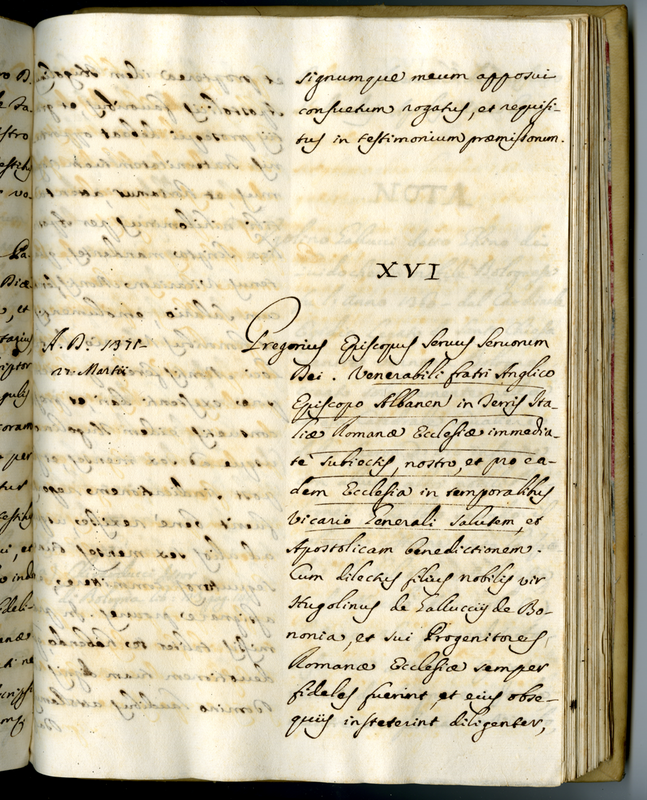 signumque meum apposui
consuetum rogatus, et requisi-
tus in testimonium præmissorum.
XVI
A. D. 1371
Martii
Gregorius Episcopus Servus Servorum
Dei. Venerabili fratri Anglico
Episcopo Albanen in Terris Ita-
liæ Romanæ Ecclesiæ immedia-
tè subiectis, nostro, et pro ea-
dem Ecclesia in temporalibus
Vicario Generali Salutem, et
Apostolicam benedictionem.
Cum dilectus filius nobilis vir
Hugolinus de Galluccijs de Bo-
nonia, et sui Progenitores
Romanæ Ecclesiæ semper
fideles fuerint, et eius obse-
quijs institerint diligenter,